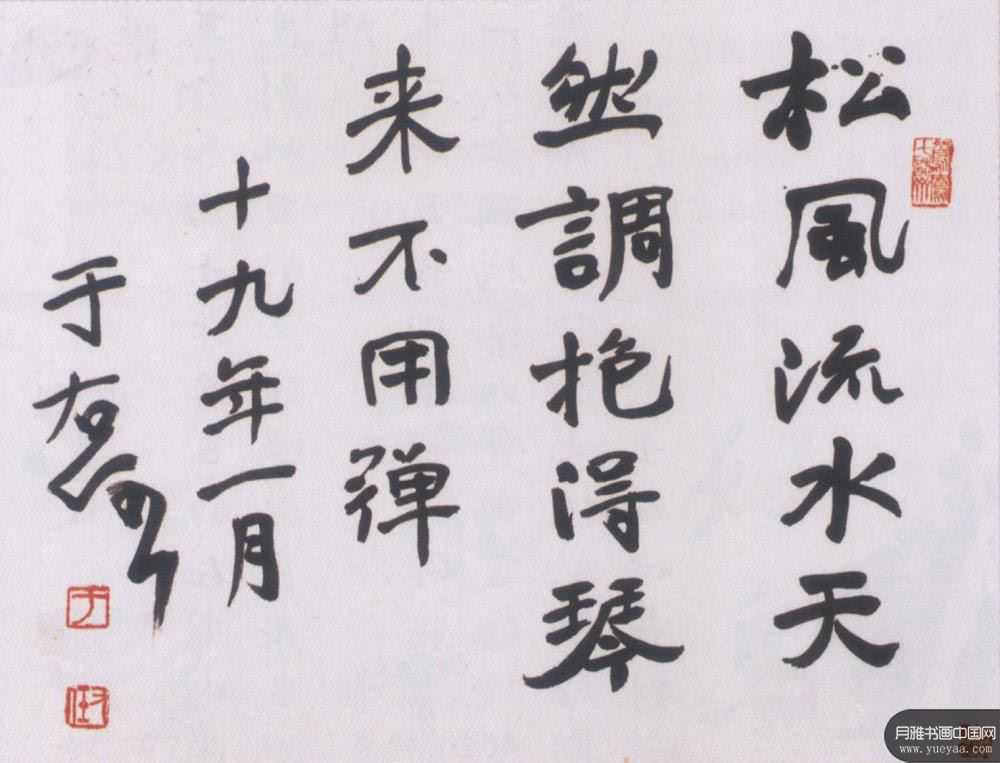 松風流水天
然調抱得琴
来不用彈
十九年一月
于右任
月雅书画中国网
www.yueyaa.com